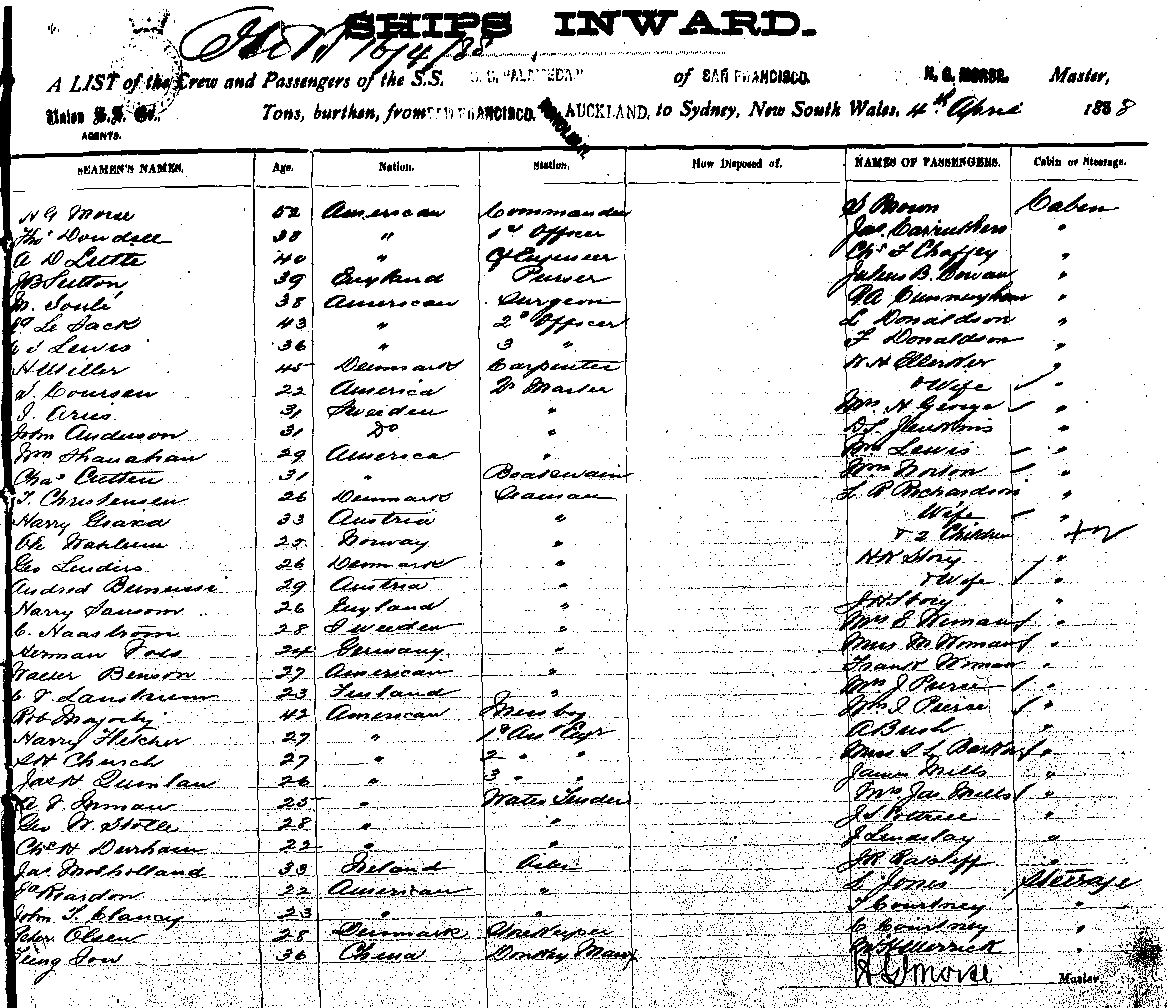 SHIPS INWARD.
16/4/88
A LIST of the Crew and Passengers of the S.S. "ALAMEDA" of SAN FRANCISCO. H. G. MORSE. Master,
Union S.S. Co., Tons, burthen, from SAN FRANCISCO. AUCKLAND, to Sydney, New South Wales. 4th April 1888
AGENTS.
HONOLULU
SEAMEN'S NAMES. Age. Nation. Station. How Disposed of. NAMES OF PASSENGERS. Cabin or Steerage.
H G Morse 52 American Commander S Brown Cabin
Thos Dowdell 38 " 1st Officer Jas. Carruthers "
40 " Ch Engineer Chs F Chaffey "
J B Sutton 39 England Purser Julius B. Cowan "
M. Soulé 38 American Surgeon P A Cunningham "
Le Jack 43 " 2d Officer L Donaldson "
Lewis 36 " 3 " F Donaldson "
H Miller 45 Denmark Carpenter "
22 America Qr Master & Wife "
31 Sweden " Mrs H George "
John Anderson 31 Do " Jenkins "
Wm Shanahan 29 America " Lewis "
Chas Cutten 31 " Boatswain Wm Norton "
T. Christensen 26 Denmark Seaman L P Richardson "
Harry 33 Austria " Wife "
Norway " & 2 Children
Geo Lenders 26 Denmark " H W Story "
29 Austria " & Wife "
Harry Sansom 26 England " J H Story "
C. Haastrom 28 Sweden " Mrs E Woman "
Herman Foss 24 Germany " Miss M Woman "
Walter Benson 37 American " Frank Woman "
23 " J Pierce "
Rob Majorty 42 American Mess boy I Pierce "
Harry Fletcher 27 " A Bush "
S H Church 27 " 2 " " Miss S L "
Jas H Quinlan 26 " 3 " " James Mills "
A T Inman 25 " Water Tender Mrs Jas Mills "
Geo W. Stolle 28 " " "
Chs H Durham 22 " " J Lindsay "
Jas Molholland 33 Ireland Oiler J R Ratcliff "
Reardon 22 American " Jones Steerage
John T. Clancy 23 " " T Courtney "
Peter Olsen 28 Denmark C Courtney "
36 China Donkey Man Merrick "
H G Morse Master.